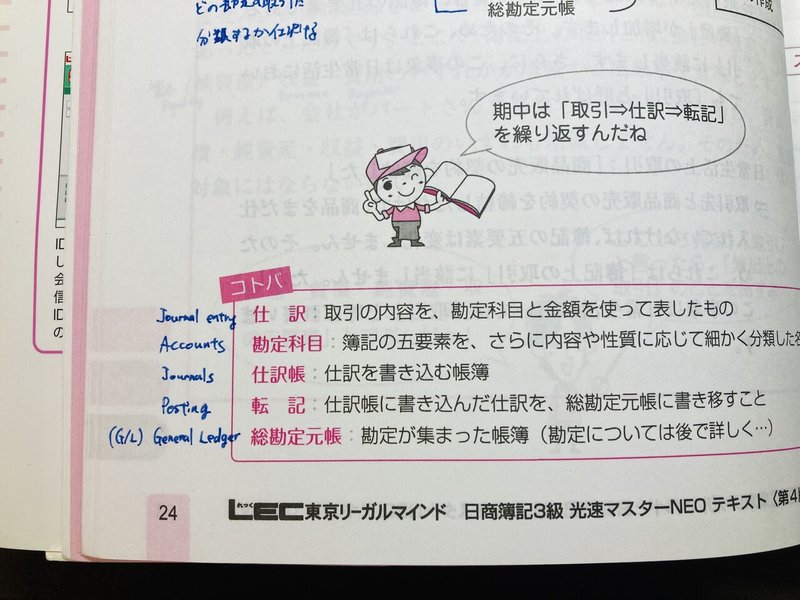 分類するか仕訳な
総勘定元帳
作成
期中は「取引⇒仕訳⇒転記」
を繰り返すんだね
コトバ
Journal entry 仕 訳：取引の内容を、勘定科目と金額を使って表したもの
Accounts 勘定科目：簿記の五要素を、さらに内容や性質に応じて細かく分類した
Journals 仕訳帳：仕訳を書き込む帳簿
Posting 転 記：仕訳帳に書き込んだ仕訳を、総勘定元帳に書き移すこと
(G/L) General Ledger 総勘定元帳：勘定が集まった帳簿（勘定については後で詳しく…）
24 れっく LEC東京リーガルマインド 日商簿記3級 光速マスターNEO テキスト〈第4